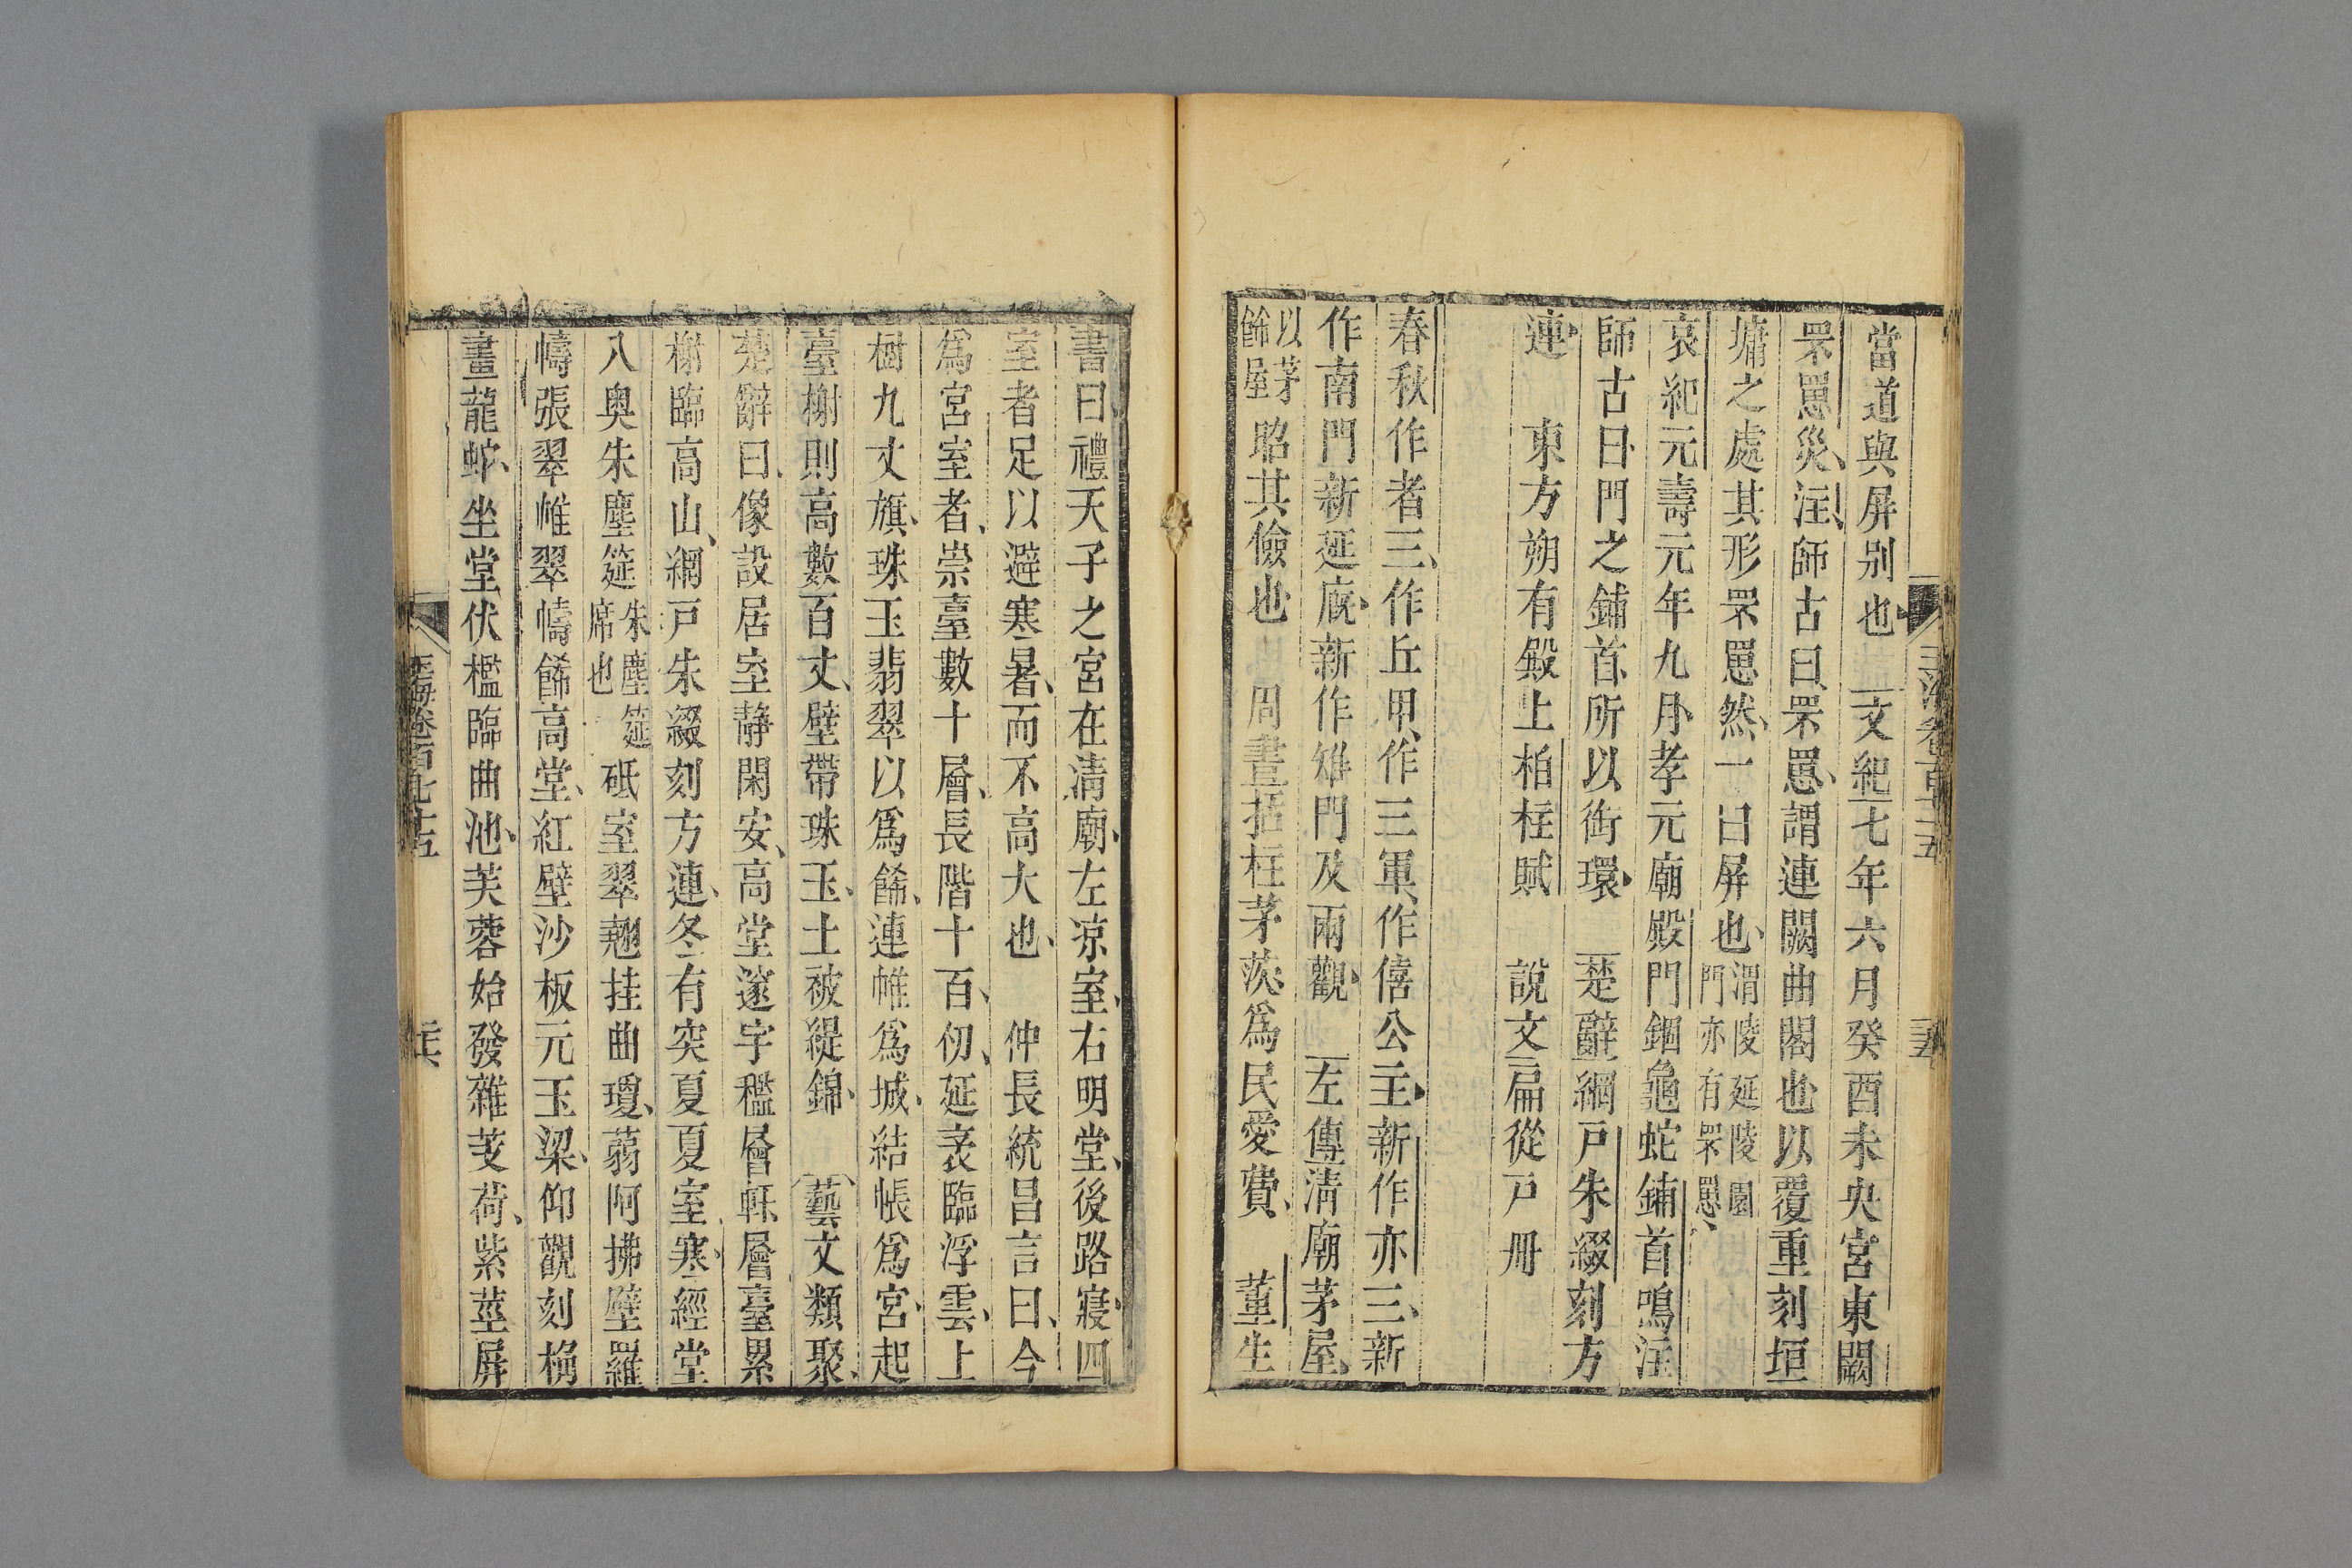 當道與屏别也　文紀七年六月癸酉未央宮東闕
罘罳災注師古曰罘罳謂連闕曲閣也以覆重刻垣
墉之處其形罘罳然一曰屏也渭陵延陵園門亦有罘罳
哀紀元壽元年九月孝元廟殿門銅龜蛇鋪首鳴注
師古曰門之鋪首所以銜環　楚辭網戸朱綴刻方
連　東方朔有殿上柏柱賦　說文扁從戸冊
春秋作者三作丘甲作三軍作僖公主新作亦三新
作南門新延廐新作雉門及兩觀　左傳清廟茅屋
以茅飾屋昭其儉也　周書括柱茅茨爲民愛費　董生
書曰禮天子之宮在清廟左凉室右明堂後路寢四
室者足以避寒暑而不高大也　仲長統昌言曰今
爲宮室者崇臺數十層長階十百仞延袤臨浮雲上
樹九丈旗珠玉翡翠以爲飾連帷爲城結帳爲宮起
臺榭則高數百丈壁帶珠玉土被緹錦　藝文類聚
楚辭曰像設居室静閑安高堂邃宇檻層軒層臺累
榭臨高山網戸朱綴刻方連冬有突夏夏室寒經堂
八奧朱塵筵朱塵筵席也砥室翠翹挂曲瓊蒻阿拂壁羅
幬張翠帷翠幬飾高堂紅壁沙板元玉梁仰觀刻桷
畫龍蛇坐堂伏檻臨曲池芙蓉始發雜芰荷紫莖屏
玉海卷百七十五